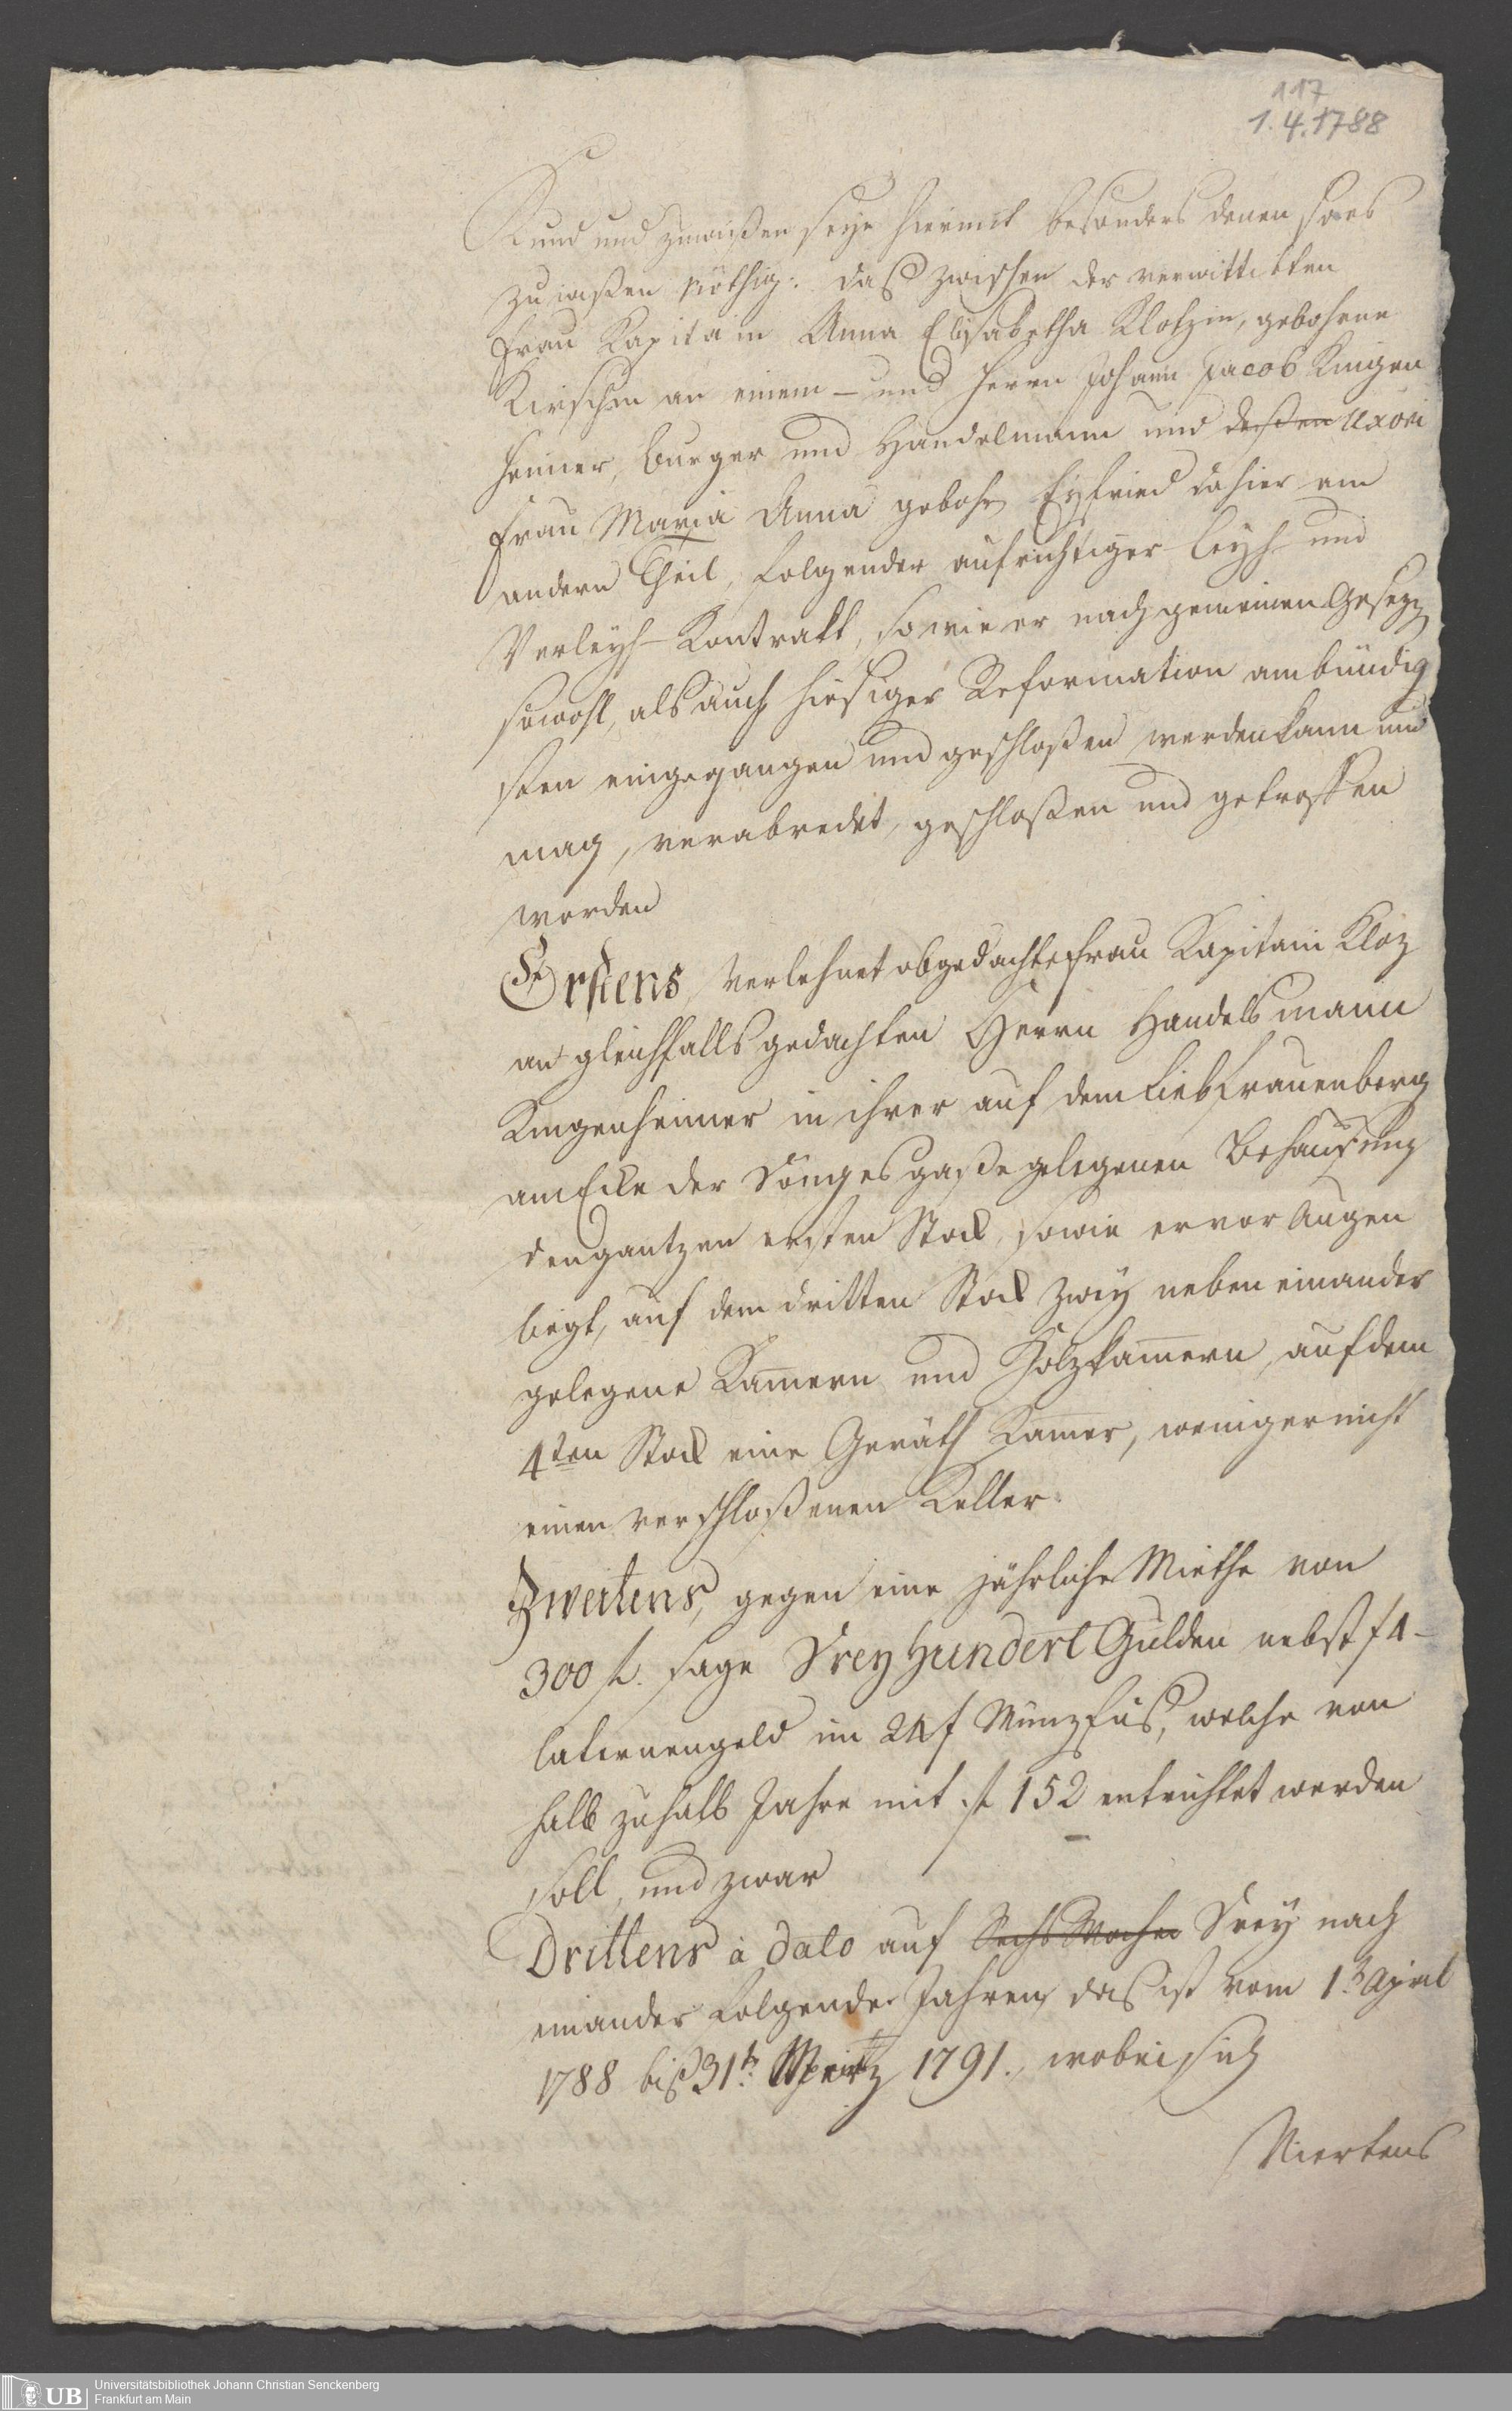 117
1.4.1788
Kund und zuwißen seye hiermit besonders denen so es
zu wißen nöthig: daß zwischen der verwittibten
Frau Kapitain Anna Elisabetha Klotzin, gebohrne
Kirschin an einem – und Herrn Johann Jacob Kingen
heimer, Burger und Handelmann und deßen Uxori
Frau Maria Anna gebohr Eyfried dahier am
andern Theil, folgender aufrichtiger Leyh- und
Verleyh-Kontrakt, so wie er nach gemeinen Gesezz
sowohl, als auch hiesiger Reformation am bündig
sten eingegangen und geschloßen werden kann und
mag, verabredet, geschloßen und getroffen
worden
Erstens, verlehnet obgedachte Frau Kapitain Kloz
an gleichfalls gedachten Herrn Handelsmann
Kingenheimer in ihrer auf dem Liebfrauenberg
am Ecke der Döngesgaße gelegenen Behausung
den gantzen ersten Stock, sowie er vor Augen
liegt, auf dem dritten Stock zwey neben einander
gelegene Kamern und Holzkamern, auf dem
4ten Stock eine Geräth Kamer, weniger nicht
einen verschloßenen Keller.
Zweitens, gegen eine jährliche Miethe von
300 f. sage Drey Hundert Gulden nebst f 4 –
Laternengeld im 24 f Münzfus, welche von
halb zu halb Jahre mit f 152 entrichtet werden
soll, und zwar
Drittens à dato auf Sechs Wochen Drey nach
einander folgende Jahren, das ist vom 1t April
1788 biß 31t: Mertz 1791., wobei sich
Viertens
UB
Universitätsbibliothek Johann Christian Senckenberg
Frankfurt am Main